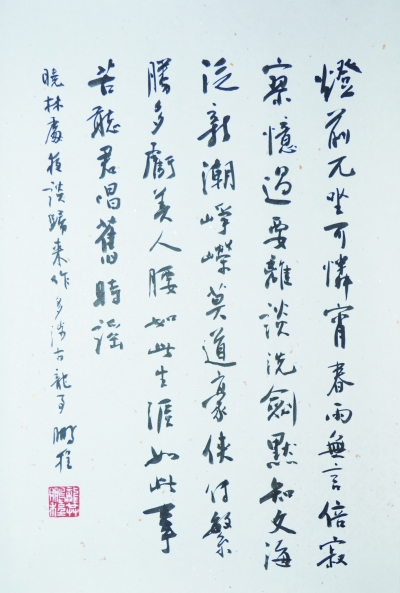 燈前兀坐可憐宵春雨無言倍寂
寥憶過要離談洗劍默知文海
泛新潮崢嶸莫道豪俠付繁
多虧美人腰如此生涯如此事
苦聽君唱舊時謠
曉林處夜談歸來作多涉古龍事 鵬程